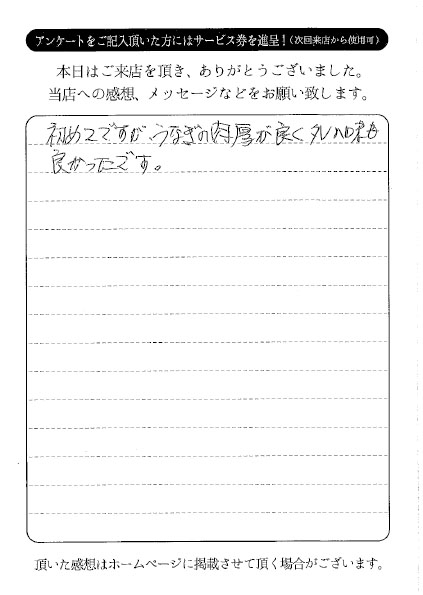 アンケートをご記入頂いた方にはサービス券を進呈!(次回来店から使用可)
本日はご来店を頂き、ありがとうございました。
当店への感想、メッセージなどをお願い致します。
初めてですが、うなぎの肉厚が良くタレの味も
良かったです。
頂いた感想はホームページに掲載させて頂く場合がございます。